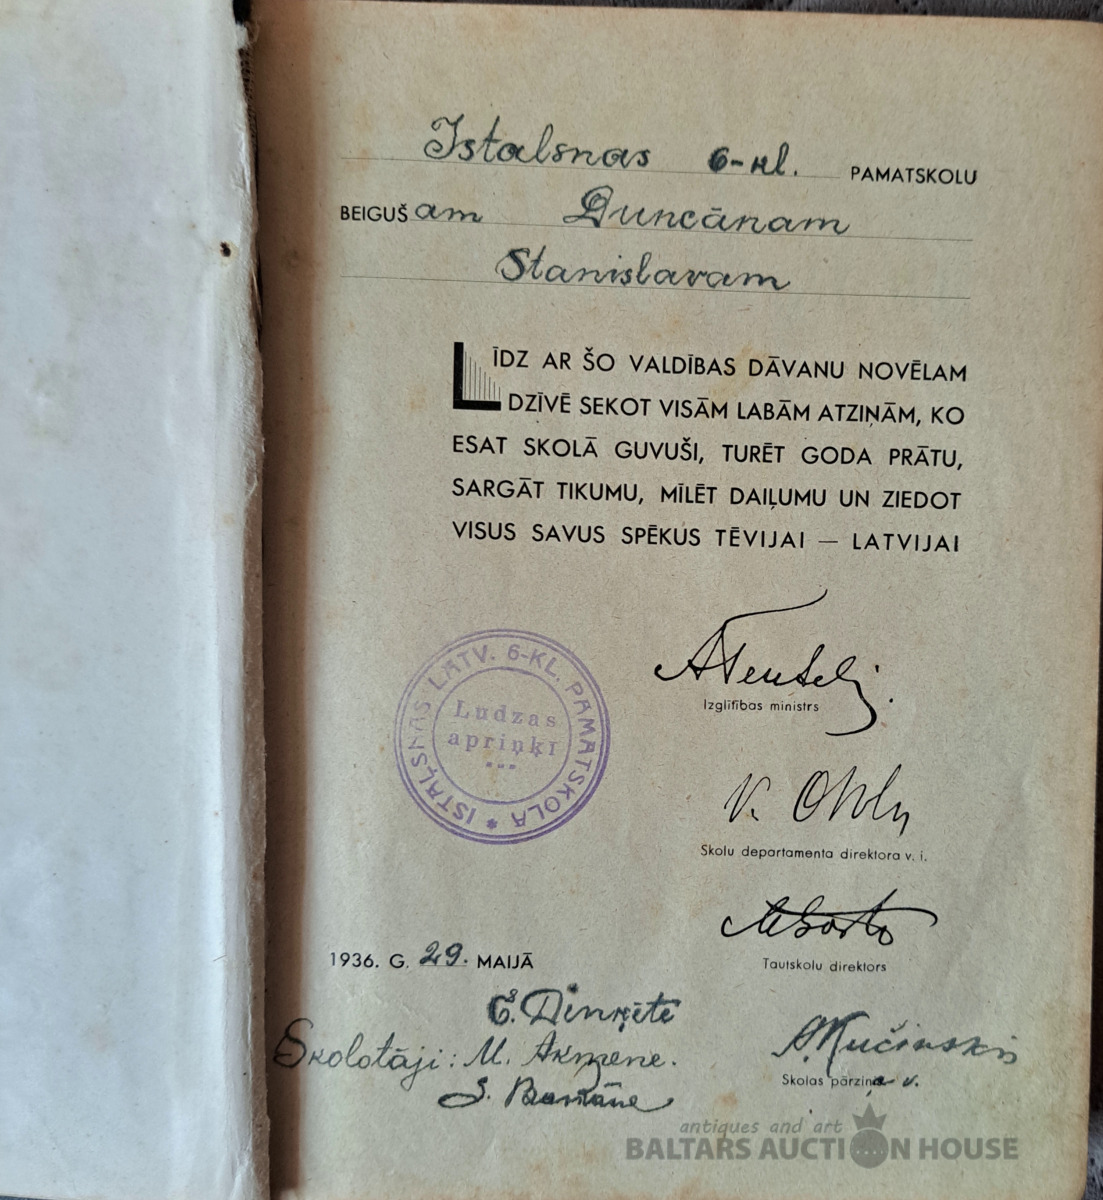 Istalsnas 6-kl. PAMATSKOLU
BEIGUŠam Duncānam
Stanislavam
LĪDZ AR ŠO VALDĪBAS DĀVANU NOVĒLAM
DZĪVĒ SEKOT VISĀM LABĀM ATZIŅĀM, KO
ESAT SKOLĀ GUVUŠI, TURĒT GODA PRĀTU,
SARGĀT TIKUMU, MĪLĒT DAIĻUMU UN ZIEDOT
VISUS SAVUS SPĒKUS TĒVIJAI — LATVIJAI
ISTAĻSNAS LATV. 6-KL. PAMATSKOLA *
Ludzas
apriņķī
Izglītības ministrs
V.
Skolu departamenta direktora v. i.
Tautskolu direktors
1936. G. 29. MAIJĀ
Skolotāji: M. Akmene.
Kučinskis
Skolas pārziņa v.
antiques and art
BALTARS AUCTION HOUSE